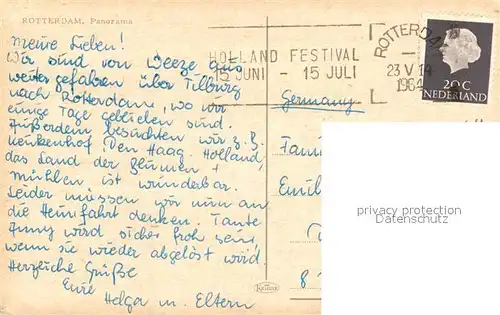 ROTTERDAM, Panorama
meine Lieben!
Wir sind von Weeze aus
weiter gefahren über Tilburg
nach Rotterdam, wo wir
einige Tage geblieben sind.
Außerdem besuchten wir z.B.
Keukenhof, Den Haag. Holland,
das Land der Blumen +
mühlen ist wunderbar.
Leider müssen wir nun an
die Heimfahrt denken. Tante
wird sicher froh sein,
wenn sie wieder abgelöst wird
Herzliche Grüße
Eure
Helga m. Eltern
HOLLAND FESTIVAL
15 JUNI - 15 JULI
ROTTERDAM
23 V 14
1964
20 C
NEDERLAND
Germany
Fam
Emil
8
privacy protection
Datenschutz